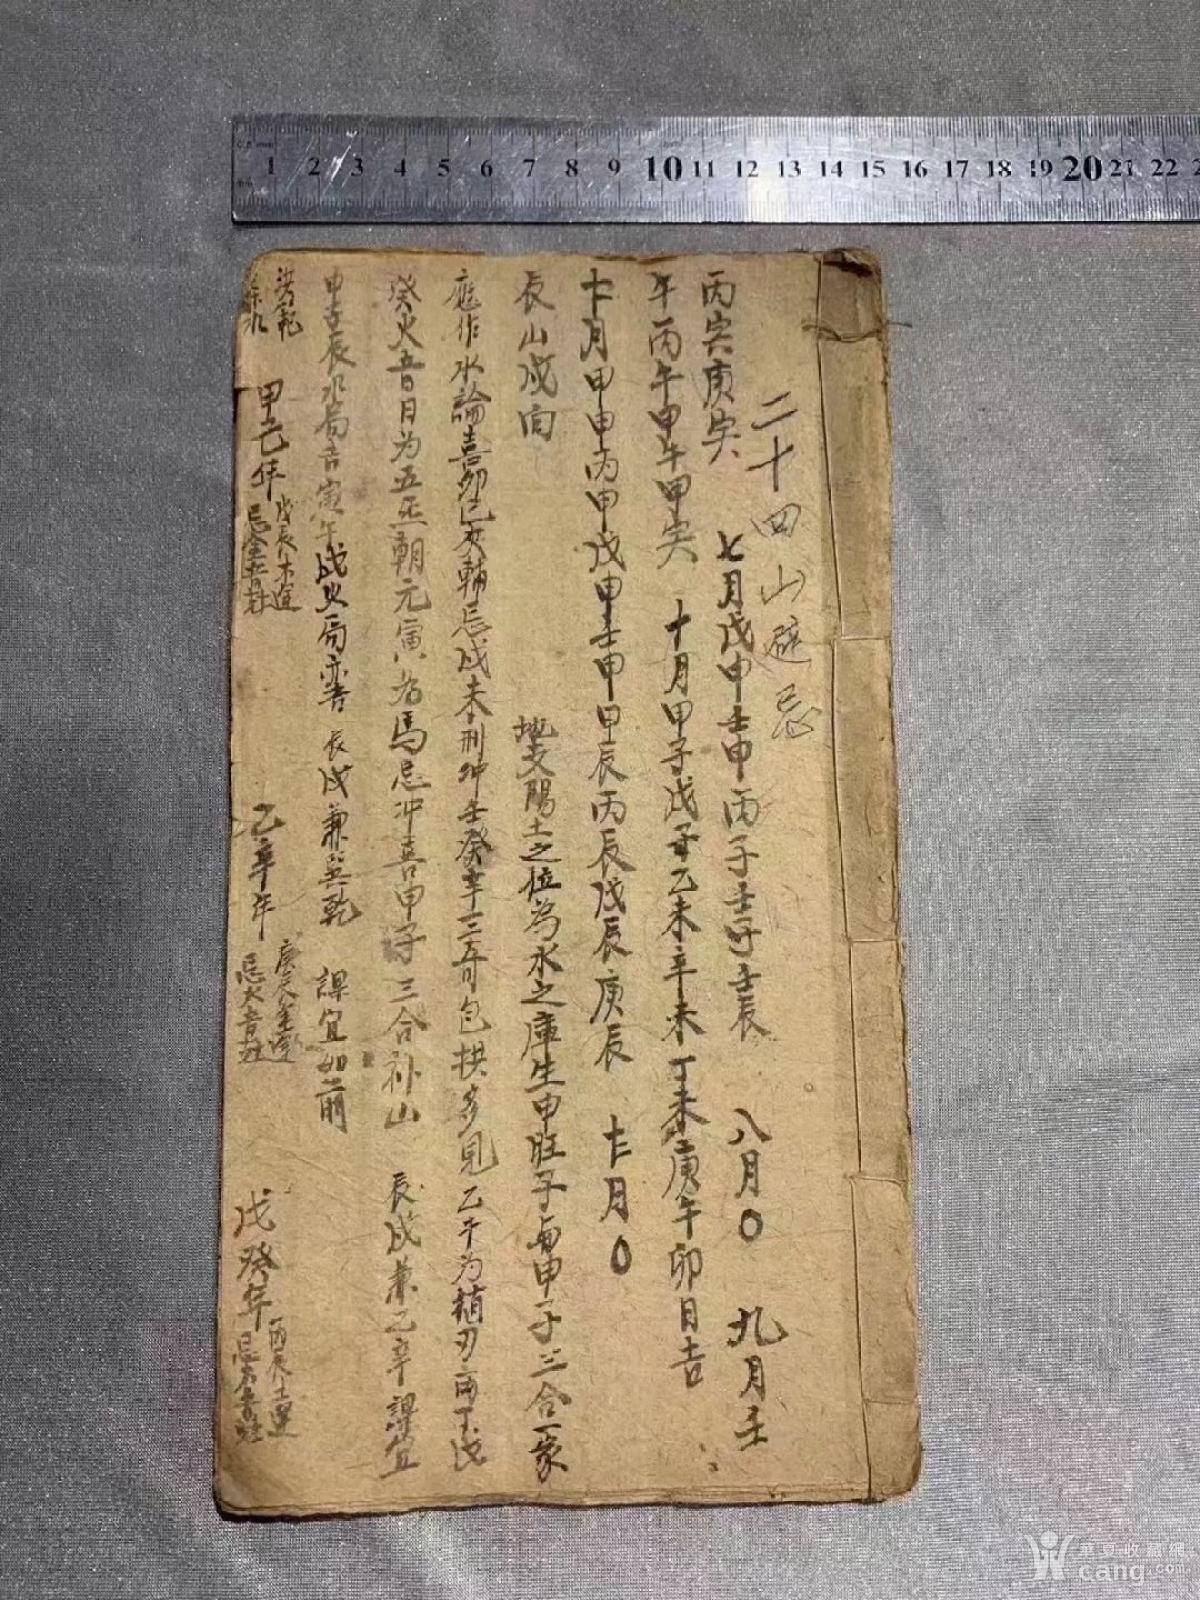 二十四山避忌
丙寅庚寅 七月戊申壬申丙子壬子壬辰 八月〇 九月壬
午丙午甲午甲寅 十月甲子戊子乙未辛未丁未庚午卯日吉
甲申丙申戊申壬申甲辰丙辰戊辰庚辰
辰山戌向 地支陽土之位為水之庫生申旺子與申子三合一家
應作水論喜卯巳亥輔忌戌未刑冲壬癸辛三奇包拱多見乙干为植刃丙丁戊
癸火五音月为五炁朝元寅為馬忌冲喜申子三合补山 辰戌兼乙辛課宜
申子辰水局吉寅午戌火局亦吉 辰戌兼巽乾 課宜如前
洪範
甲己年 戊辰木運
乙辛年 庚辰金運
戊癸年 丙辰土運
1 2 3 4 5 6 7 8 9 10 11 12 13 14 15 16 17 18 19 20 21 22
華夏收藏網
cang.com